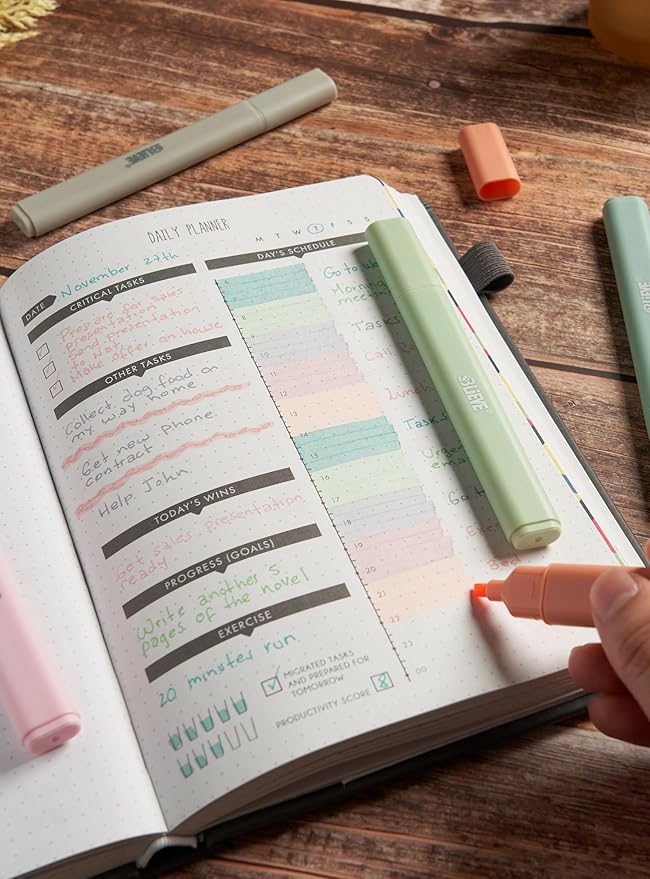 LIEVE
DAILY PLANNER
M T W T F S S
DATE November 27th
CRITICAL TASKS
Prepare for sales
presentation
Send presentation
to Nat
Make offer on house
OTHER TASKS
Collect dog food on
my way home
Get new phone
contract
Help John
TODAY'S WINS
Get sales presentation
ready
PROGRESS (GOALS)
Write another 5
pages of the novel
EXERCISE
20 minutes run
MIGRATED TASKS
AND PREPARED FOR
TOMORROW
PRODUCTIVITY SCORE 8
DAY'S SCHEDULE
6
7
8
9
10
11
12
13
14
15
16
17
18
19
20
21
22
23
00
Go to
Morning
meeting
Tasks
Call
Lunch
Tasks
Urgent
Go to
Bed
LIEVE
LIEVE